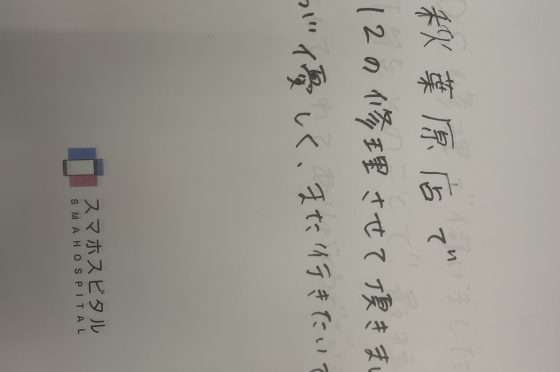 秋葉原店で
12の修理させて頂きまし
が優しく、また行きたいで
スマホスピタル
SMAHOSPITAL